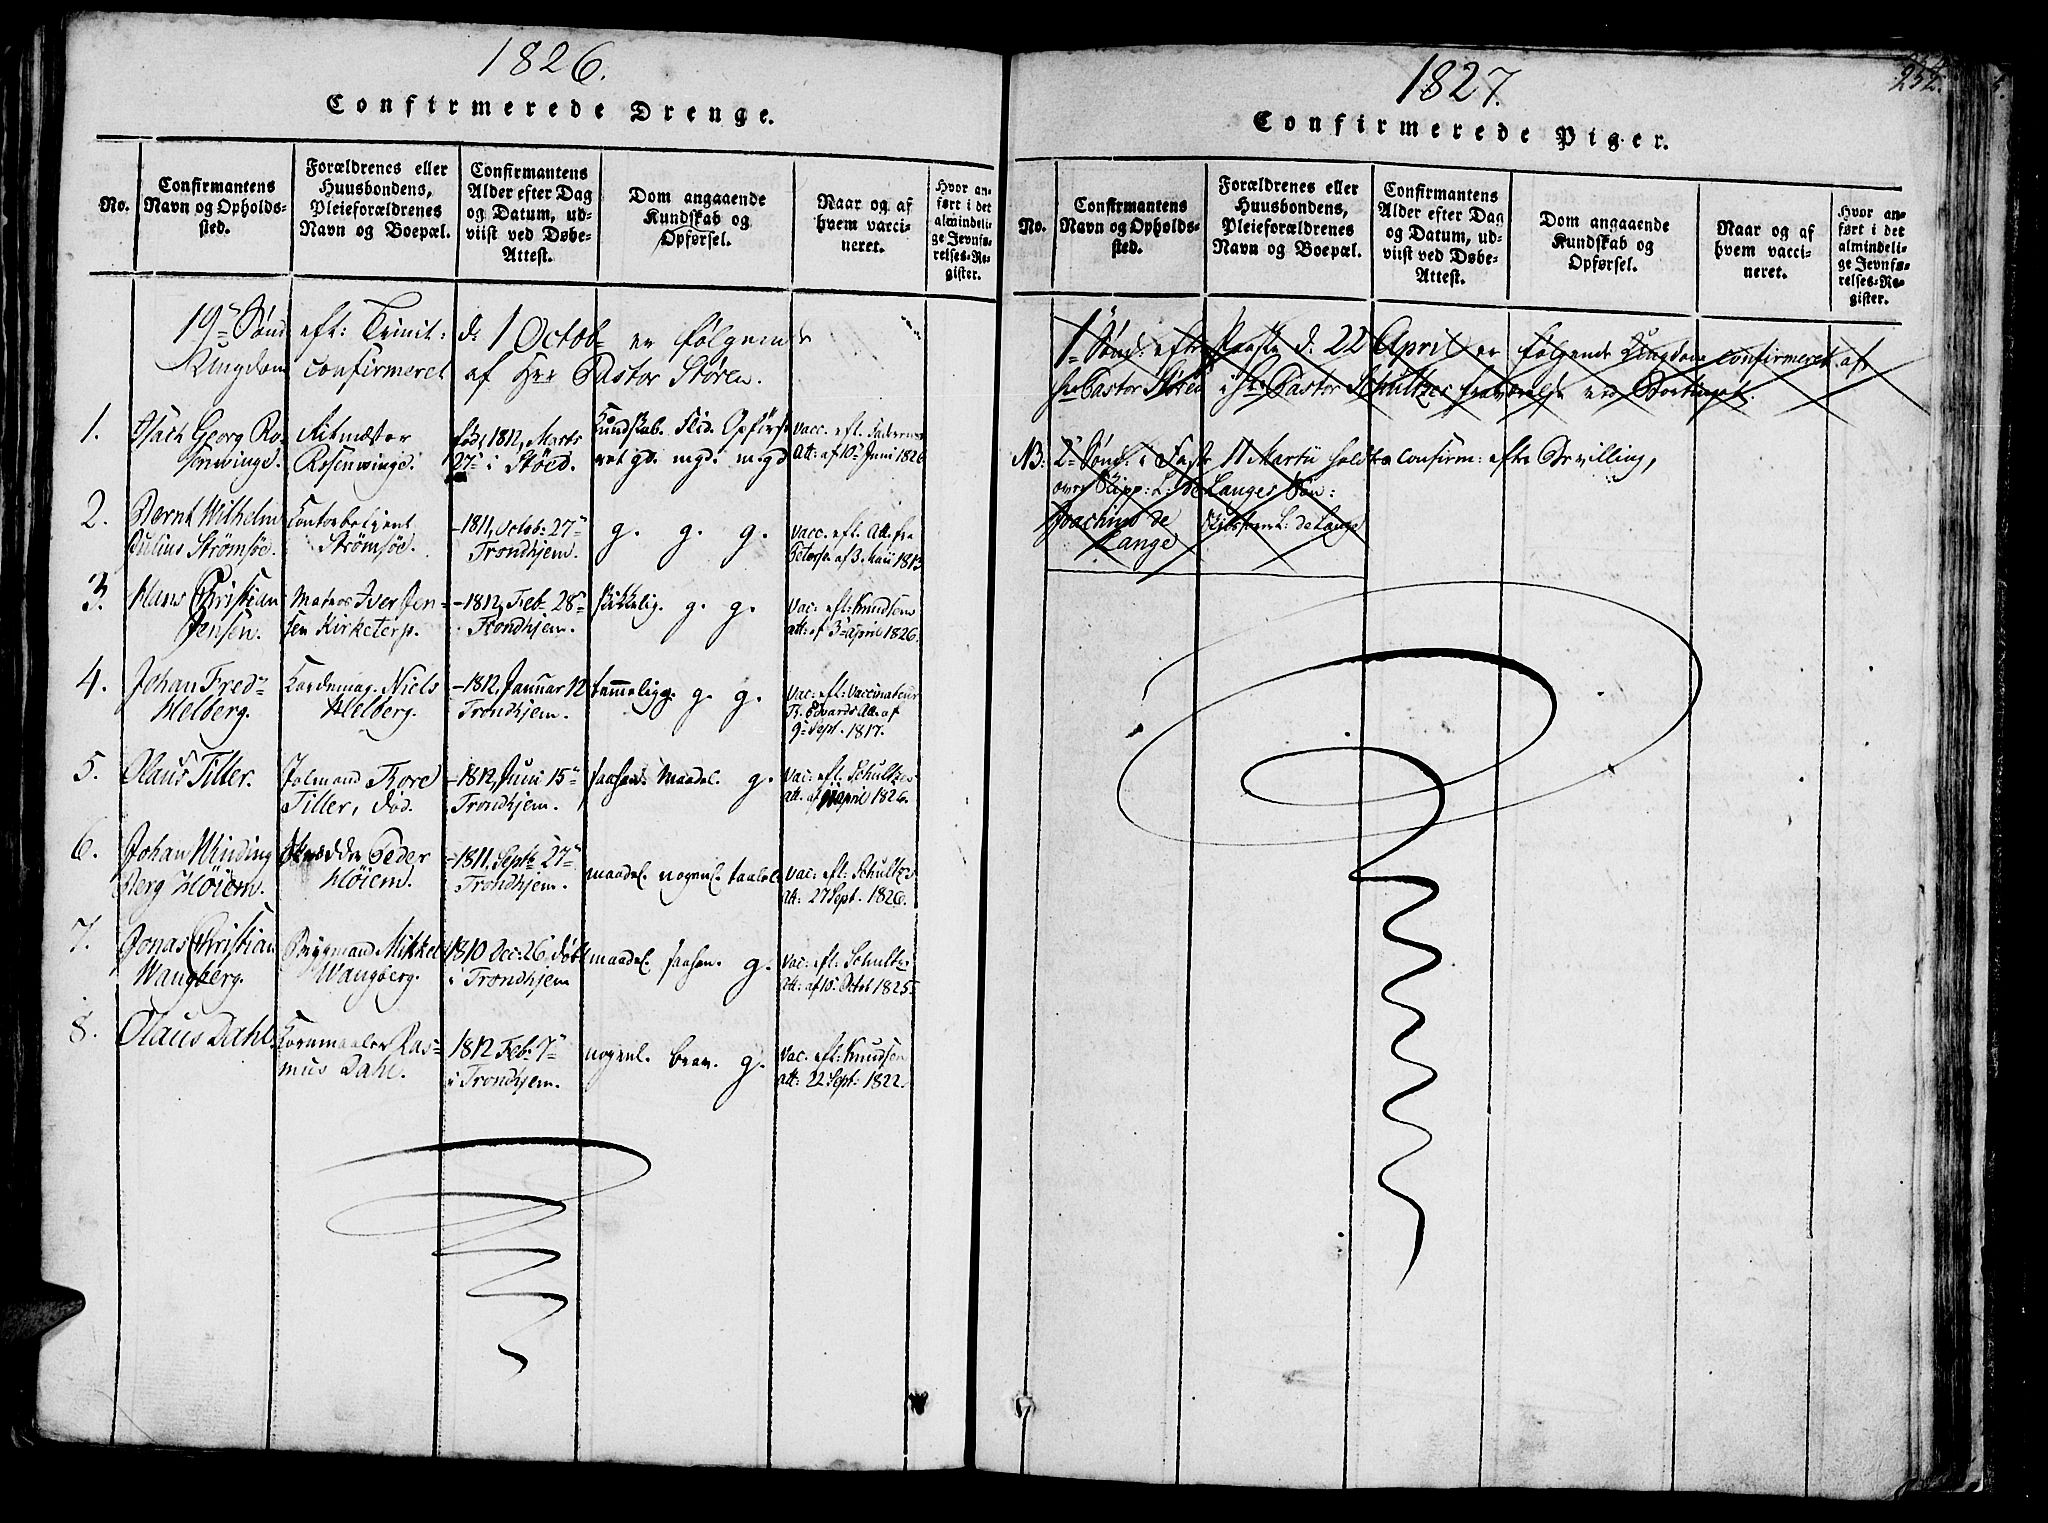 1826.
Confirmerede Drenge.
No.
Confirmantens
Navn og Opholds-
sted.
Forældrenes eller
Huusbondens,
Pleieforældrenes
Navn og Boepæl.
Confirmantens
Alder efter Dag
og Datum, ud-
viist ved Døbe-
Attest.
Dom angaaende
Kundskab og
Opførsel.
Naar og af
hvem vacci-
neret.
Hvor an-
ført i det
almindeli-
ge Jevnfø-
relses-Re-
gister.
19de Sønd eft: Trinit: d: 1 Octob er følgende
Ungdom confirmeret af Hr Pastor Stören.
1.
Isach Georg Ro-
senvinge.
Ritmester
Rosenvinge.
föd 1812, Marts
27de i Stöed.
Kundskab. Flid. Opförsel
mgd. mgd
vacc. eft. Faderens
Att: af 10de Juni 1826
2.
Bernt Wilhelm
Julius Strömsöe.
Contorbetjent
Strömsöe.
-1811, Octob: 27de
Trondhjem.
g. g. g.
vacc. eft. Att. fra
af 3. Maii 1813
3.
Hans Christian
Jensen.
Matros Iver Jen-
sen Kirketerp.
-1812, Feb. 28de
Trondhjem.
skikkelig. g. g.
Vac: eft: Knudsens
att: af 3de april 1826.
4.
Johan Fredr
Helberg.
Niels
Helberg.
-1812, Januar 12
Trondhjem.
temmelig g. g. g.
Vac: eft: Vaccinateur
R. Edvards Att. af
9de Sept. 1817.
5.
Olaus Tiller.
Tore
Tiller, död.
-1812, Juni 15de
Trondhjem.
saasan. maadel. g.
Vac: eft. Schultzes
att. af april 1826.
6.
Johan Winding
Berg Höiem.
Skrædder Peder
Höiem.
-1811, Septb 27de
Trondhjem.
maadel. nogenl. taalel.
Vac: eft: Schultzes
att: 27 Sept. 1826.
7.
Jonas Christian
Wangberg.
Brygmand Mikkel
Wangberg.
1810 Dec: 26, döbt
i Trondhjem
maadel. saasan. g.
Vac: eft: Schultzes
att: af 15. Octob 1825
8.
Olaus Dahl.
Kornmaaler Ras-
mus Dahl.
1812 Feb: 7de
i Trondhjem.
nogenl. brav. g.
Vac. eft: Knudsen
att: 22 Sept: 1822.
252.
1827.
Confirmerede Piger.
No.
Confirmantens
Navn og Opholds-
sted.
Forældrenes eller
Huusbondens,
Pleieforældrenes
Navn og Boepæl.
Confirmantens
Alder efter Dag
og Datum, ud-
viist ved Døbe-
Attest.
Dom angaaende
Kundskab og
Opførsel.
Naar og af
hvem vacci-
neret.
Hvor an-
ført i det
almindeli-
ge Jevnfø-
relses-Re-
gister.
1te Sønd: efter Paaske d: 22 April er følgende Ungdom confirmeret af
Hr Pastor Stören i Hr Pastor Schultzes fraværelse ved Storthinget.
NB: 2de Sønd: i Faste 11 Martii holdtes confirm: efter Bevilling,
over Skipp: L: de Langes Sön:
Joachim de
Lange
Skipper L: de Lange